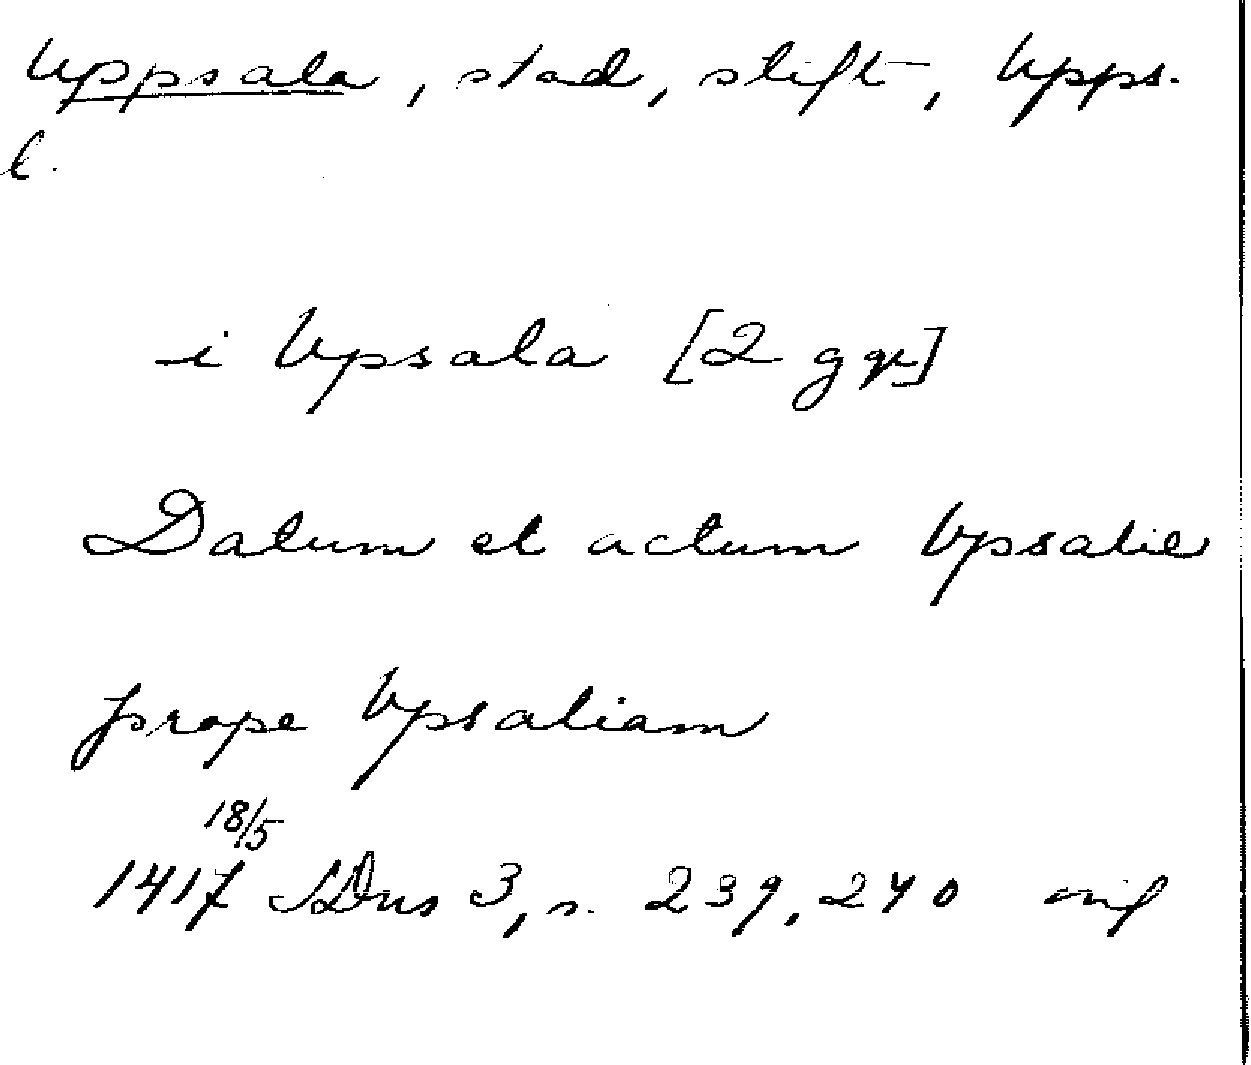 Uppsala, stad, stift, Upps.
l.
i Vpsala [2 ggr]
Datum et actum Vpsalie
prope Vpsaliam
18/5
1417 SDns 3, s. 239, 240 orig